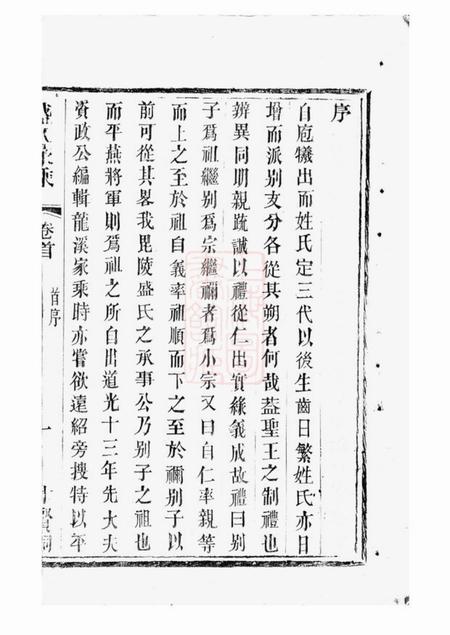 序
自庖犧出而姓氏定三代以後生齒日繁姓氏亦日
增而派别支分各從其朔者何哉葢聖王之制禮也
辨異同明親疏誠以禮從仁出實緣義成故禮曰别
子爲祖繼别爲宗繼禰者爲小宗又曰自仁率親等
而上之至於祖自義率祖順而下之至於禰别子以
前可從其畧我毘陵盛氏之承事公乃别子之祖也
而平燕將軍則爲祖之所自出道光十三年先大夫
資政公編輯龍溪家乘時亦嘗欲遠紹旁搜特以年
卷首
首序
一